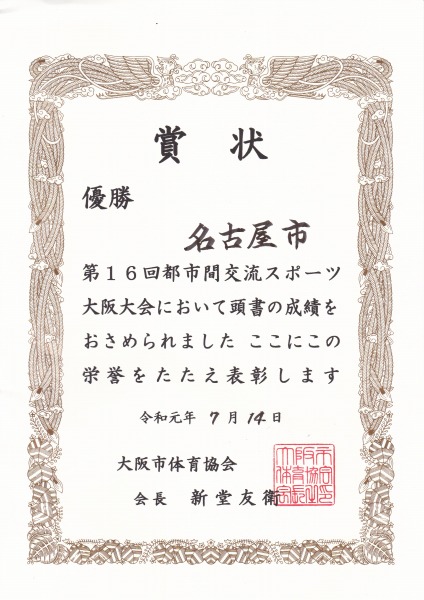 賞状
優勝
名古屋市
第16回都市間交流スポーツ
大阪大会において頭書の成績を
おさめられました ここにこの
栄誉をたたえ表彰します
令和元年 7月 14日
大阪市体育協会
会長 新堂友衛